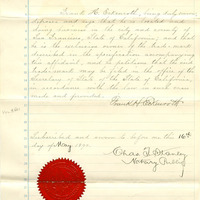 Frank H. Ecksworth, being duly sworn,
deposes and says that he is located and
doing business in the city and county of
San Francisco State of California; and that
he is the exclusive owner of the trade-mark
described in the specification accompanying
this affidavit, and he petitions that the said
trade-mark may be filed in the office of the
Secretary of State of the State of California,
in accordance with the law in such case
made and provided.
Frank H.
Subscribed and sworn to before me this 16th
day of May
Chas.
Notary Public